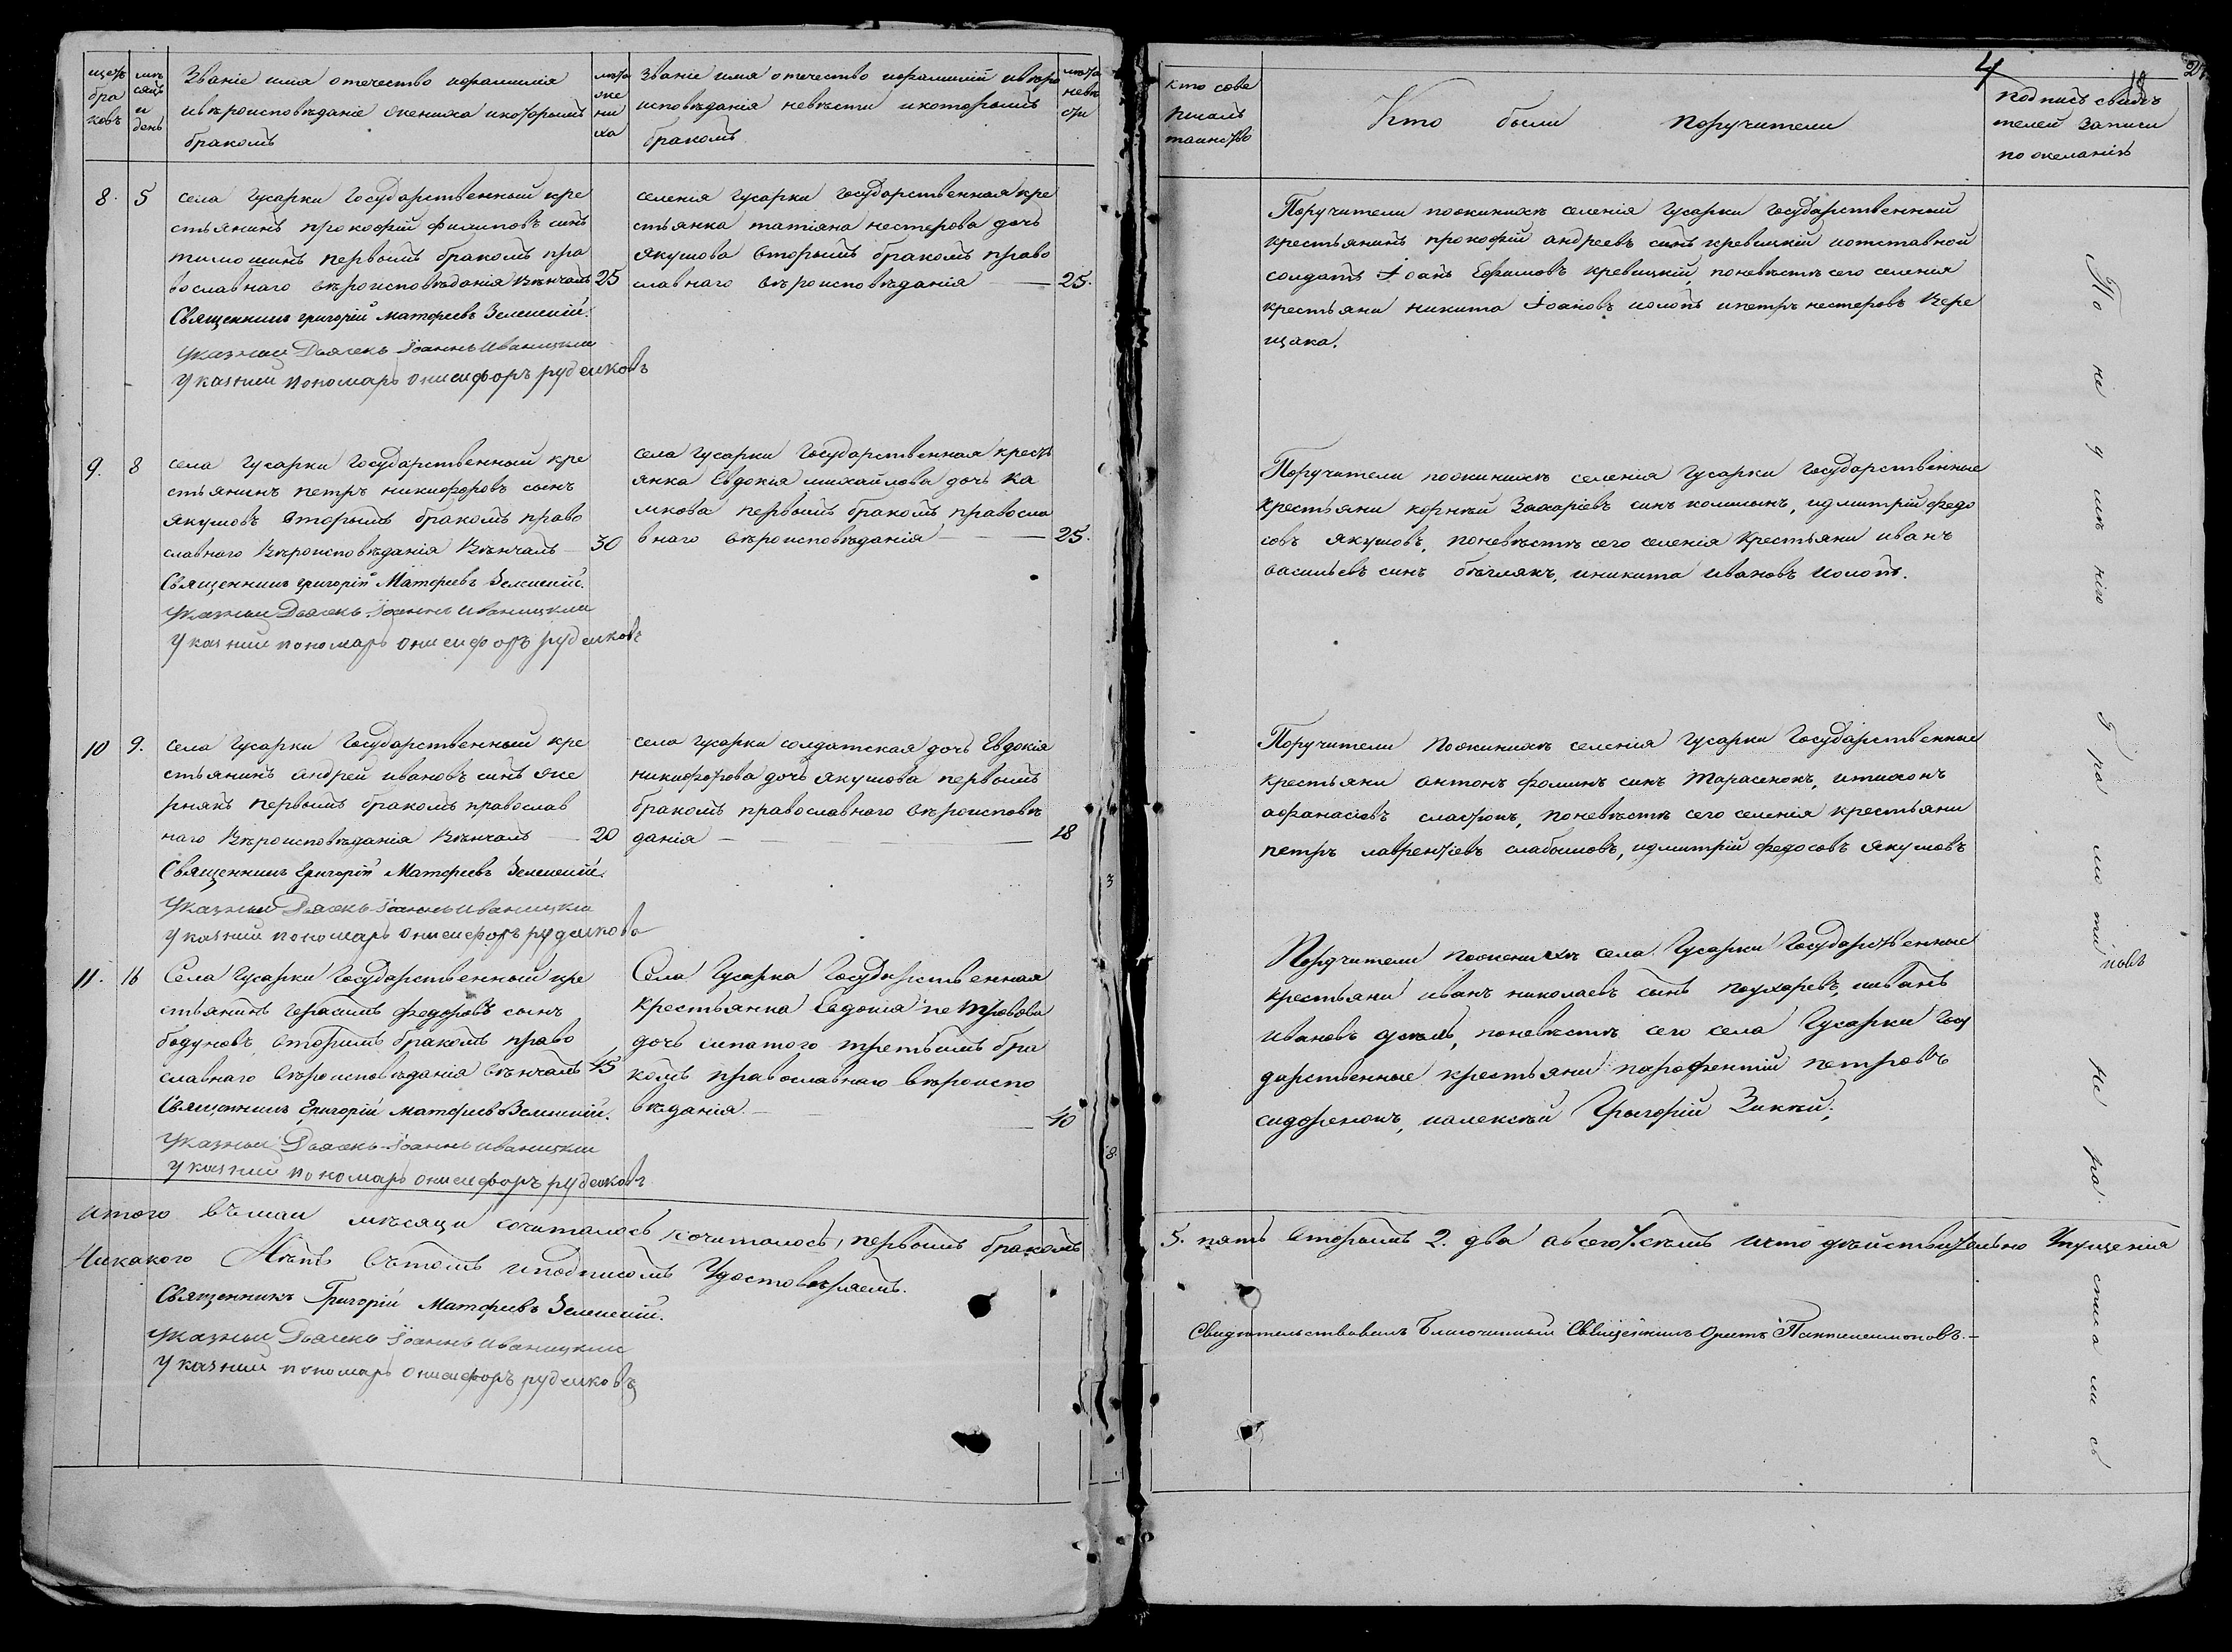 щетъ бра ковъ
мѣ сяцъ и день
Званіе имя отечество ифамилія
ивѣроисповѣданіе жениха икоторымъ
бракомъ
лѣта же ни ха
Званіе имя отечество ифамилій ивѣро
исповѣданія невѣсти икоторымъ
бракомъ
лѣта невѣ сти
8. 5
села Гусарки Государственный кре
стьянинъ прокофій филиповъ синъ
тимошинъ первымъ бракомъ пра
вославнаго вѣроисповѣданія Вѣнчалъ 25
Священникъ григорій Матфеевъ Зеленскій.
Указный Дьячекъ Іоаннъ иваницкій
Указний пономарь онисифоръ рудемковъ
селенія Гусарки Государственная кре
стьянка татіана нестерова дочь
якушова вторымъ бракомъ право
славнаго вѣроисповѣданія — 25.
9. 8
села Гусарки Государственный кре
стьянинъ петръ никифоровъ сынъ
якушовъ вторымъ бракомъ право
славнаго Вѣроисповѣданія Вѣнчалъ — 30
Священникъ григорій Матфеевъ Зеленскій.
Указный Дьячекъ Іоаннъ иваницкій
Указний пономарь онисифоръ рудемковъ
села Гусарки Государственная кресть
янка Евдокія михайлова дочь ка
мкова первымъ бракомъ правосла
внаго вѣроисповѣданія — 25.
10 9.
села Гусарки Государственный кре
стьянинъ андрей ивановъ синъ же
рнякъ первымъ бракомъ православ
наго Вѣроисповѣданія Вѣнчалъ — 20
Священникъ Григорій Матфеевъ Зеленскій.
Указный Дьячекъ Іоаннъ иваницкій
Указний пономарь онисифоръ рудемковъ
села гусарки солдатская дочь Евдокія
никифорова дочь якушова первымъ
бракомъ православнаго вѣроисповѣ
данія — 18
11. 16
Села Гусарки Государственный кре
стьянинъ Герасимъ федоровъ сынъ
бодуновъ, вторимъ бракомъ право
славнаго вѣроисповѣданія вѣнчалъ 45
Священникъ Григорій матфеевъ Зеленскій.
Указный Дьячекъ Іоаннъ иваницкій
Указний пономарь онисифоръ рудемковъ
Села Гусарка Государственная
крестьянка Евдокія петровова
дочь липатого третьимъ бра
комъ православнаго вѣроиспо
вѣданія. — 40
итого въмаи мѣсяци сочиталось сочиталось, первымъ бракомъ
Никакого Нѣтъ вътомъ иподписомъ Удостовѣряемъ.
Священникъ Григорій Матфеевъ Зеленскій.
Указный Дьячекъ Іоаннъ иваницкій
Указний пономарь онисифоръ рудемковъ
4
18
27
кто сове
ршалъ
таинство
Кто были поручители
подписъ свидѣ
телей записи
по желанію
Поручители пожинихѣ селенія Гусарки Государственный
крестьянинъ прокофій андреевъ синъ кревицкій иотставной
солдатъ Іоанъ Ефимовъ кревицкій, поневѣстѣ сего селенія
крестьяни никита Іоановъ иолопъ ипетръ нестеровъ Кере
щака.
Поручители пожинихѣ селенія Гусарки Государственные
крестьяни корнѣй Захаріевъ синъ колишнъ, идмитрій федо
совъ якушовъ, поневѣстѣ сего селенія крестьяни иванъ
васильевъ синъ бѣглякъ, иникита ивановъ иолопъ.
Поручители пожинихѣ селенія Гусарки Государственные
крестьяни антонъ фоминъ синъ Тарасенокъ, итихонъ
афанасіовъ сластюнъ, поневѣстѣ сего селенія крестьяни
петръ лаврентіевъ слабышовъ, идмитрій федосовъ якушовъ
Поручители поженихѣ села Гусарки Государственные
крестьяни иванъ николаевъ сынъ поухаревъ, ииванъ
ивановъ, поневѣстѣ сего села Гусарки Госу
дарственные крестьяни парфентій петровъ
сидоренокъ, иалексѣй Григорій Зикѣй.
5. пять вторымъ 2. два авсего 7. семъ ичто дѣйствительно Упущенія
Свидѣтельствовалъ Благочинный Священникъ Орестъ Пантелеимоновъ.
По не у мѣ нію Гра мо ти новъ не ра списа ли сь